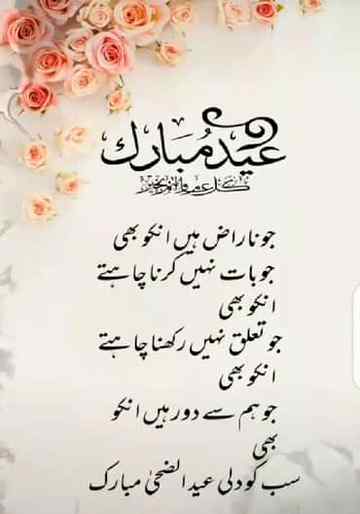 عيد مبارك
كل عام وأنتم بخير
جو ناراض ہیں انکو بھی
جو بات نہیں کرنا چاہتے
انکو بھی
جو تعلق نہیں رکھنا چاہتے
انکو بھی
جو ہم سے دور ہیں انکو
بھی
سب کو دلی عید الضحیٰ مبارک